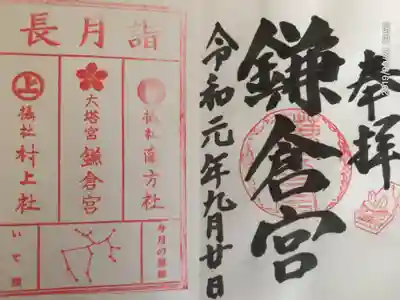 奉拝
鎌倉宮
令和元年九月廿日
長月詣
攝社 南方社
大塔宮 鎌倉宮
上
攝社 村上社
今月の星座
いて座